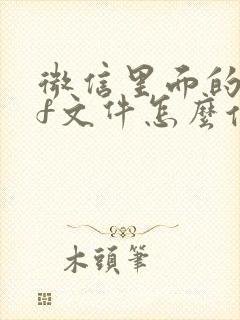 微信里面的
f文件怎麼
木頭筆